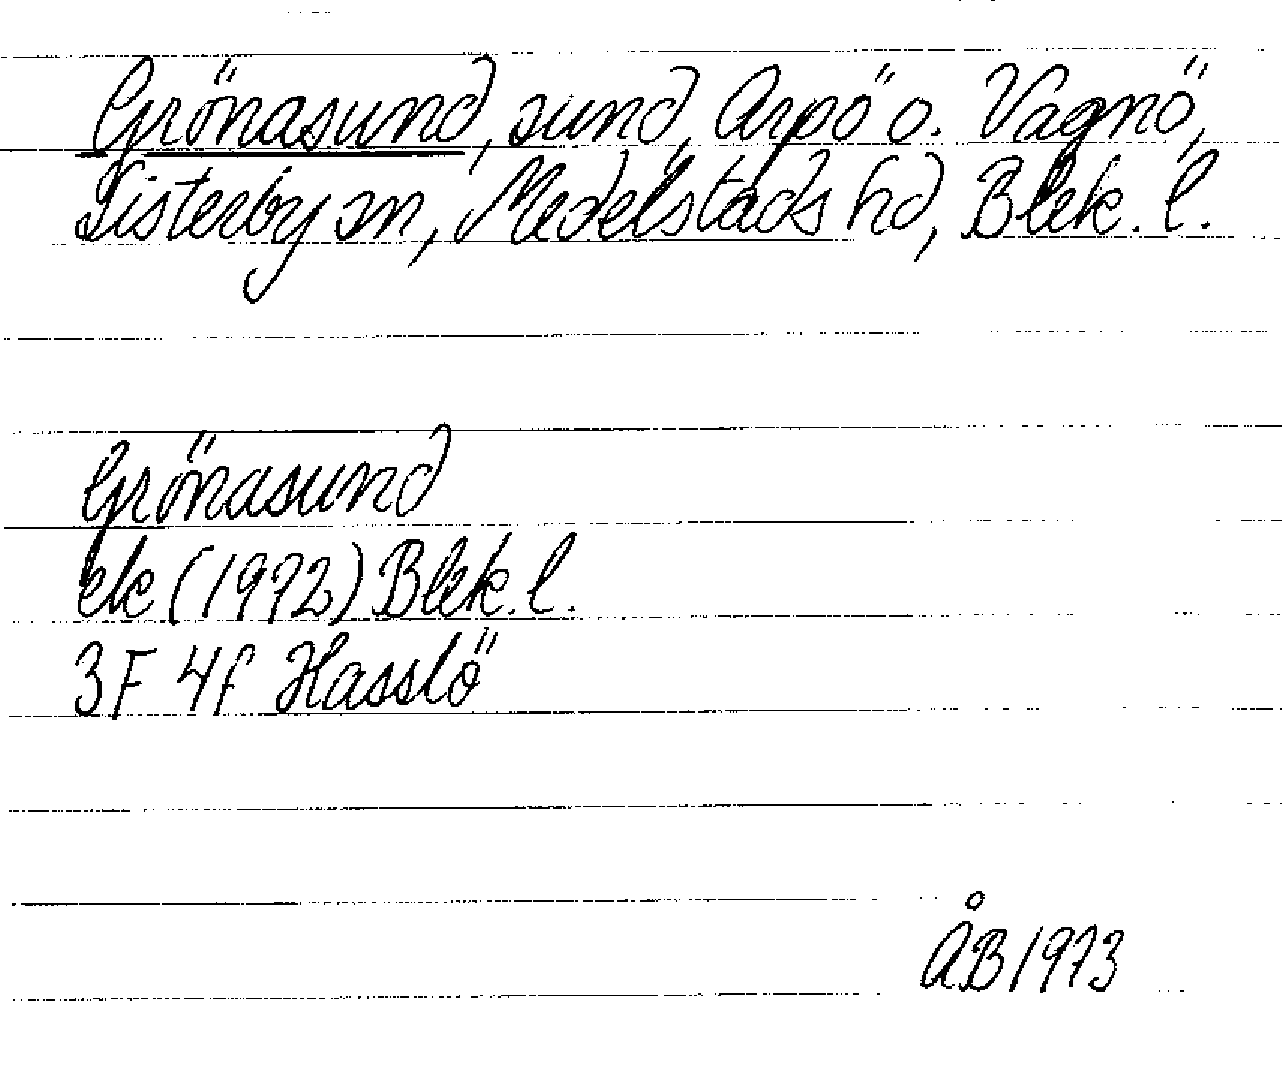 Grönasund, sund, Arpö o. Vagnö,
Listerby sn, Medelstads hd, Blek. l.
Grönasund
ek (1972) Blek. l.
3F 4f Hasslö
ÅB 1973